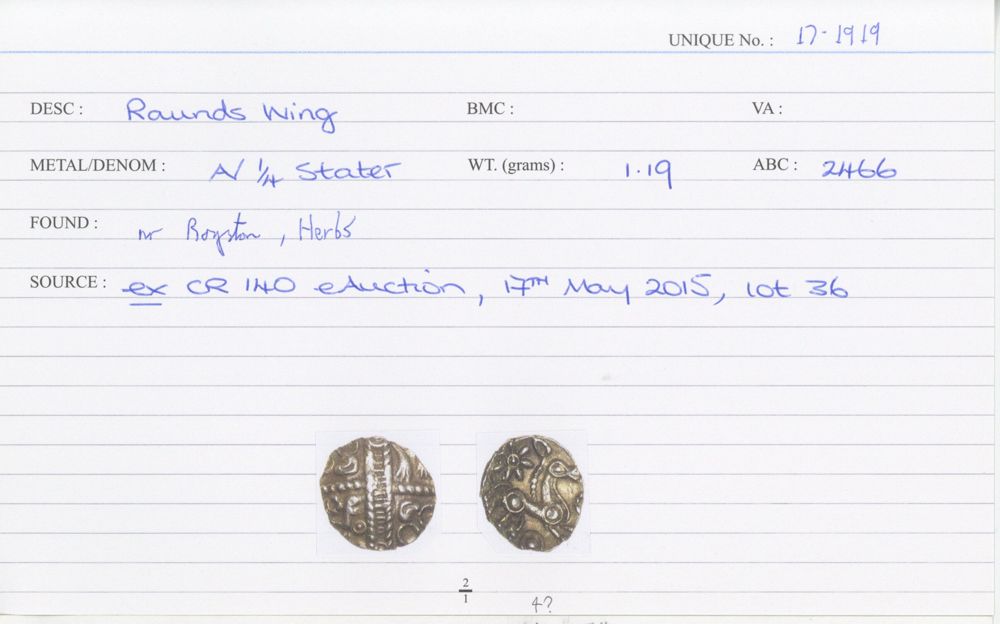 UNIQUE No. : 17-1919
DESC : Raunds Wing BMC : VA :
METAL/DENOM : A/ 1/4 Stater WT. (grams) : 1.19 ABC : 2466
FOUND : nr Royston, Herts
SOURCE : ex CR 140 eAuction, 17TH May 2015, lot 36
2
1
4?